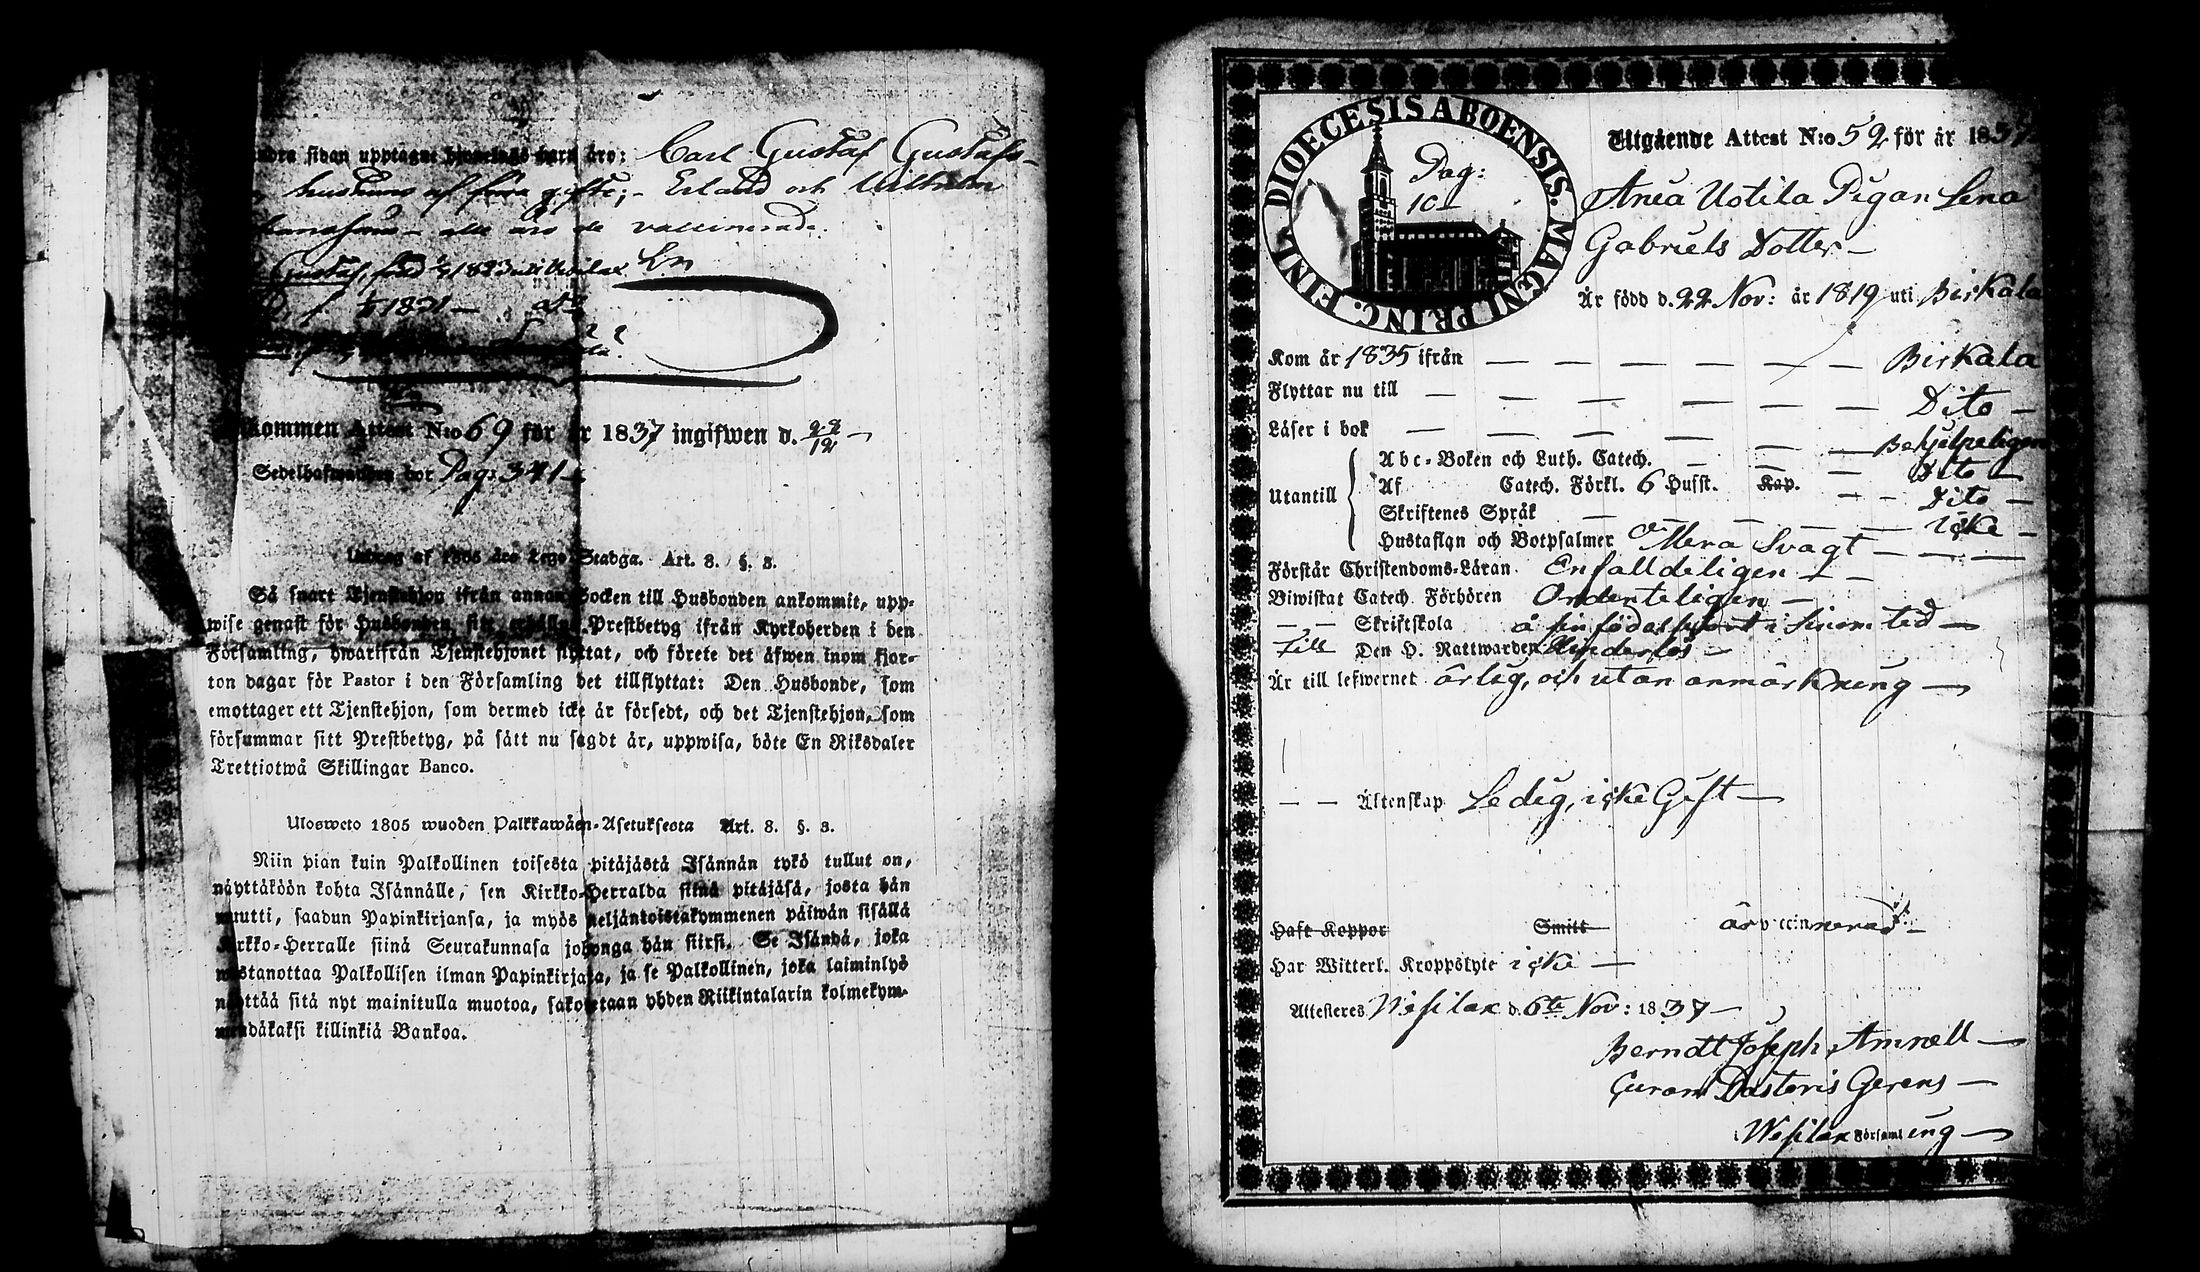 sidan upptagne äro: Carl Gustaf Gustafs-
af förra gifte; - Erland och Wilhelm
alla äro de vaccinerade.
Gustaf, född 1823
1821 —
kommen Attest N:o 69 för år 1837 ingifwen d. 28/12 —
Pag: 341
Utdrag af 1805 års Lego Stadga. Art. 8. §. 3.
Så snart Tjenstehjon ifrån annan Socken till Husbonden ankommit, upp-
wise genast för Husbonden sitt Prestbetyg ifrån Kyrkoherden i den
Församling, hwarifrån Tjenstehjonet flyttat, och förete det äfwen inom fjor-
ton dagar för Pastor i den Församling det tillflyttat: Den Husbonde, som
emottager ett Tjenstehjon, som dermed icke är försedt, och det Tjenstehjon, som
försummar sitt Prestbetyg, på sätt nu sagdt är, uppwisa, böte En Riksdaler
Trettiotwå Skillingar Banco.
Ulosweto 1805 wuoden Palkkawäen-Asetuksesta Art. 8. §. 3.
Niin pian kuin Palkollinen toisesta pitäjästä Isännän tykö tullut on,
näyttäköön kohta Isännälle, sen Kirkko-Herralda siinä pitäjäsä, josta hän
muutti, saadun Papinkirjansa, ja myös neljäntoistakymmenen päiwän sisällä
Kirkko-Herralle siinä Seurakunnasa johonga hän siirsi. Se Isändä, joka
wastanottaa Palkollisen ilman Papinkirjata, ja se Palkollinen, joka laiminlyö
näyttää sitä nyt mainitulla muotoa, sakotetaan yhden Riikintalarin kolmekym-
mendäkaksi killinkiä Bankoa.
DIOECESIS ABOENSIS. MAGNI PRINC. FINL.
Pag:
10
Utgående Attest N:o 52 för år 1837
Anea Uotila Pigan Lena
Gabriels Dotter —
Är född d. 22 Nov: år 1819 uti Birkala
Kom år 1835 ifrån — — — — — — Birkala
Flyttar nu till — — — — — — Dito —
Läser i bok — — — — — — Behjelpeligen
Utantill
Abc-Boken och Luth. Catech. — — — Dito —
Af Catech. Förkl. 6 Hufst. Kap. — — Dito —
Skriftenes Språk — — — — — icke —
Hustaflan och Botpsalmer Mera Svagt — — —
Förstår Christendoms-Läran Enfalldeligen — —
Biwistat Catech. Förhören Ordenteligen —
— — Skriftskola å sin födelseort i sinom tid —
Till Den H. Nattwarden Hinderlös —
Är till lefwernet ärlig, och utan anmärkning —
— — Äktenskap Ledig, icke Gift —
Haft Koppor Smitt är vaccinnerad —
Har Witterl. Kroppslyte icke —
Attesteres Wesilax d. 6te Nov: 1837 —
Berndt Joseph Amnell —
Curam Pastoris Gerens —
i Wesilax Församl ing —